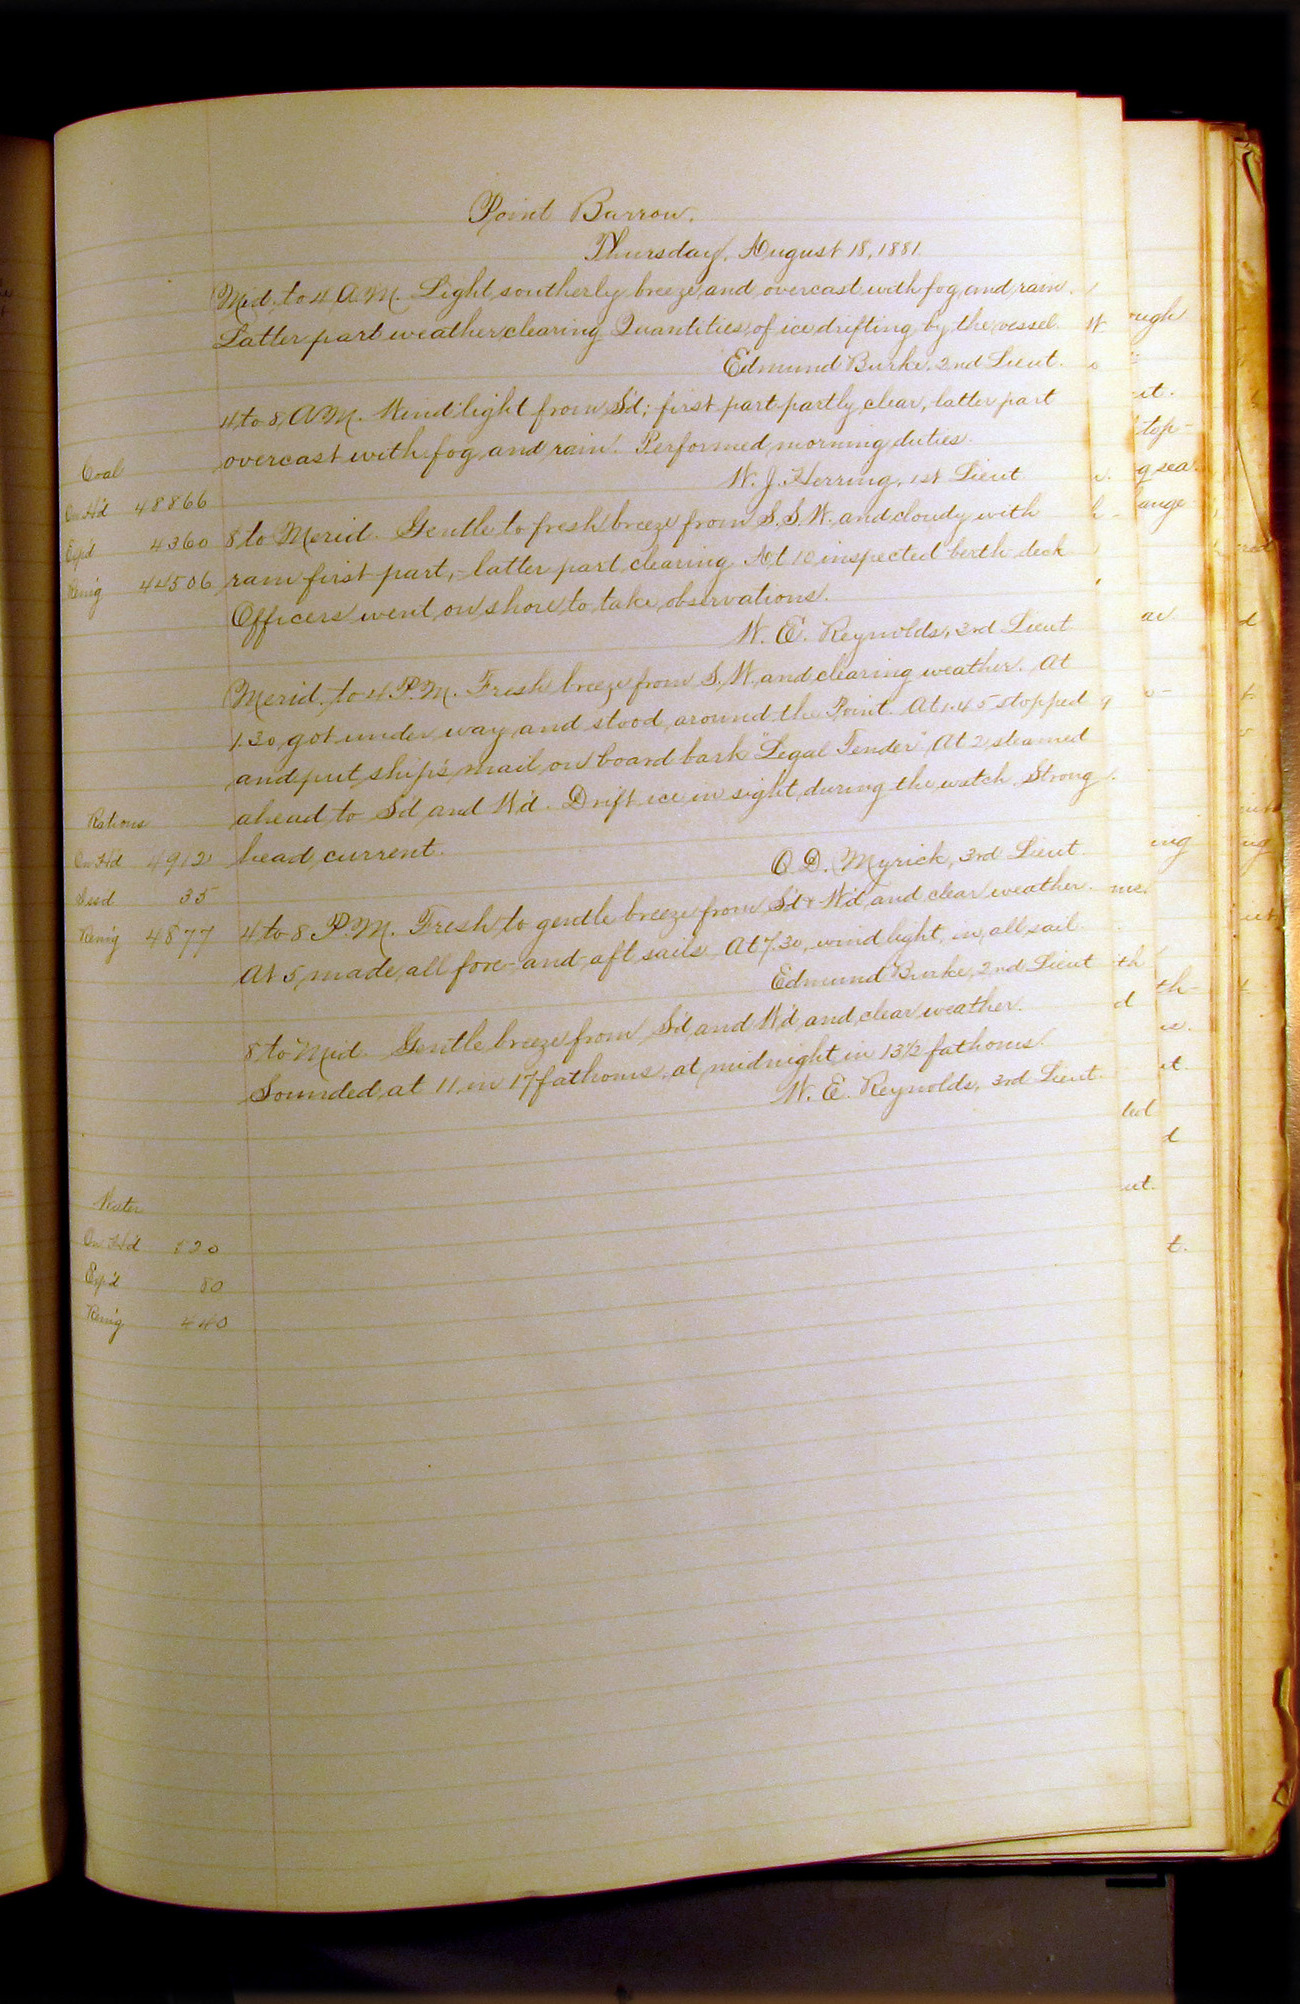 Point Barrow.
Thursday, August 18, 1881.
Mid. to 4 A.M. Light southerly breeze and overcast with fog and rain.
Latter part weather clearing Quantities of ice drifting by the vessel.
Edmund Burke, 2nd Lieut.
4 to 8 A.M. Wind light from S'd; first part partly clear, latter part
overcast with fog and rain. Performed morning duties.
W. J. Herring, 1st Lieut.
8 to Merid. Gentle to fresh breeze from S.S.W. and cloudy with
rain first part, - latter part clearing At 10 inspected berth deck
Officers went on shore to take observations.
W. E. Reynolds, 3rd Lieut
Merid. to 4 P.M. Fresh breeze from S.W. and clearing weather. At
1.30 got under way and stood around the Point. At 1.45 stopped
and put ship's mail on board bark "Legal Tender" At 2 steamed
ahead to S'd and W'd. Drift ice in sight during the watch. Strong
head current.
O. D. Myrick, 3rd Lieut.
4 to 8 P.M. Fresh to gentle breeze from S'd & W'd and clear weather.
At 5 made all fore-and-aft sails. At 7.30, wind light, in all sail.
Edmund Burke, 2nd Lieut
8 to Mid. Gentle breeze from S'd and W'd and clear weather.
Sounded at 11 in 17 fathoms, at midnight in 13½ fathoms.
W. E. Reynolds, 3rd Lieut.
Coal
On H'd 48866
Exp'd 4360
Rem'g 44506
Rations
On H'd 4912
Iss'd 35
Rem'g 4877
Water
On H'd 520
Exp'd 80
Rem'g 440